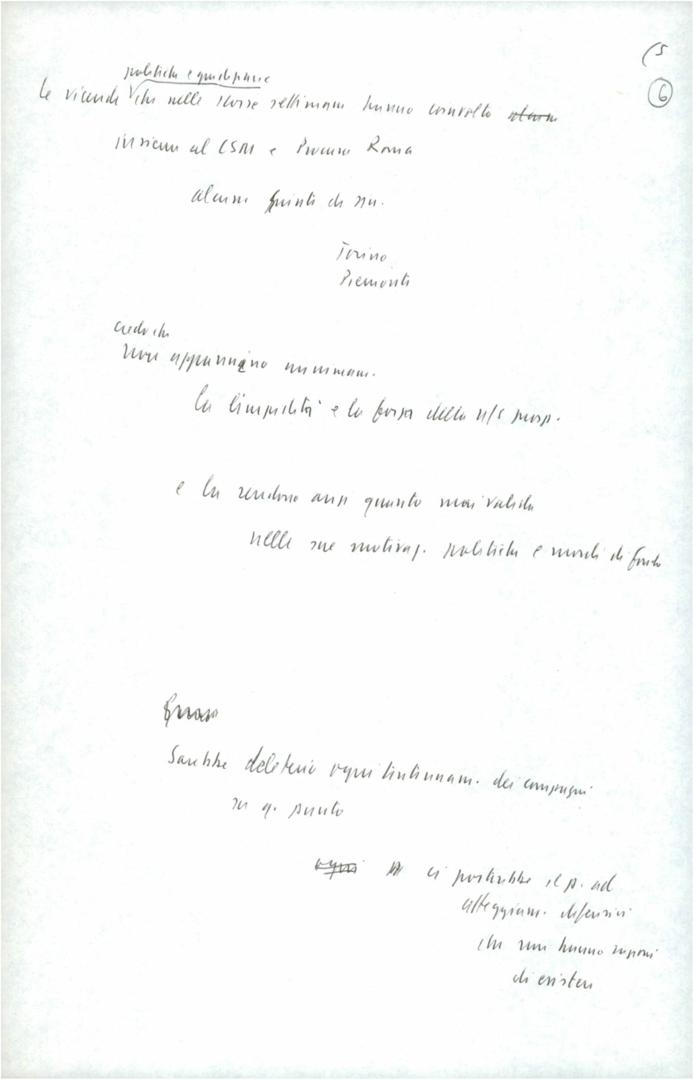 (5
6
politiche e giudiziarie
le vicende che nelle scorse settimane hanno coinvolto alcuni
insieme al CSM e Procura Roma
alcuni punti di
Torino
Piemonte
credo che
non appannino minimam.
la limpidità e la forza della n/s prop.
e la rendono anzi quanto mai valida
nelle sue motivaz. politiche e morali di fondo
Sarebbe deleterio ogni tintinnam. dei compagni
su q. punto
ogni ci porterebbe il p. ad
atteggiam. difensivi
che non hanno ragioni
di esistere